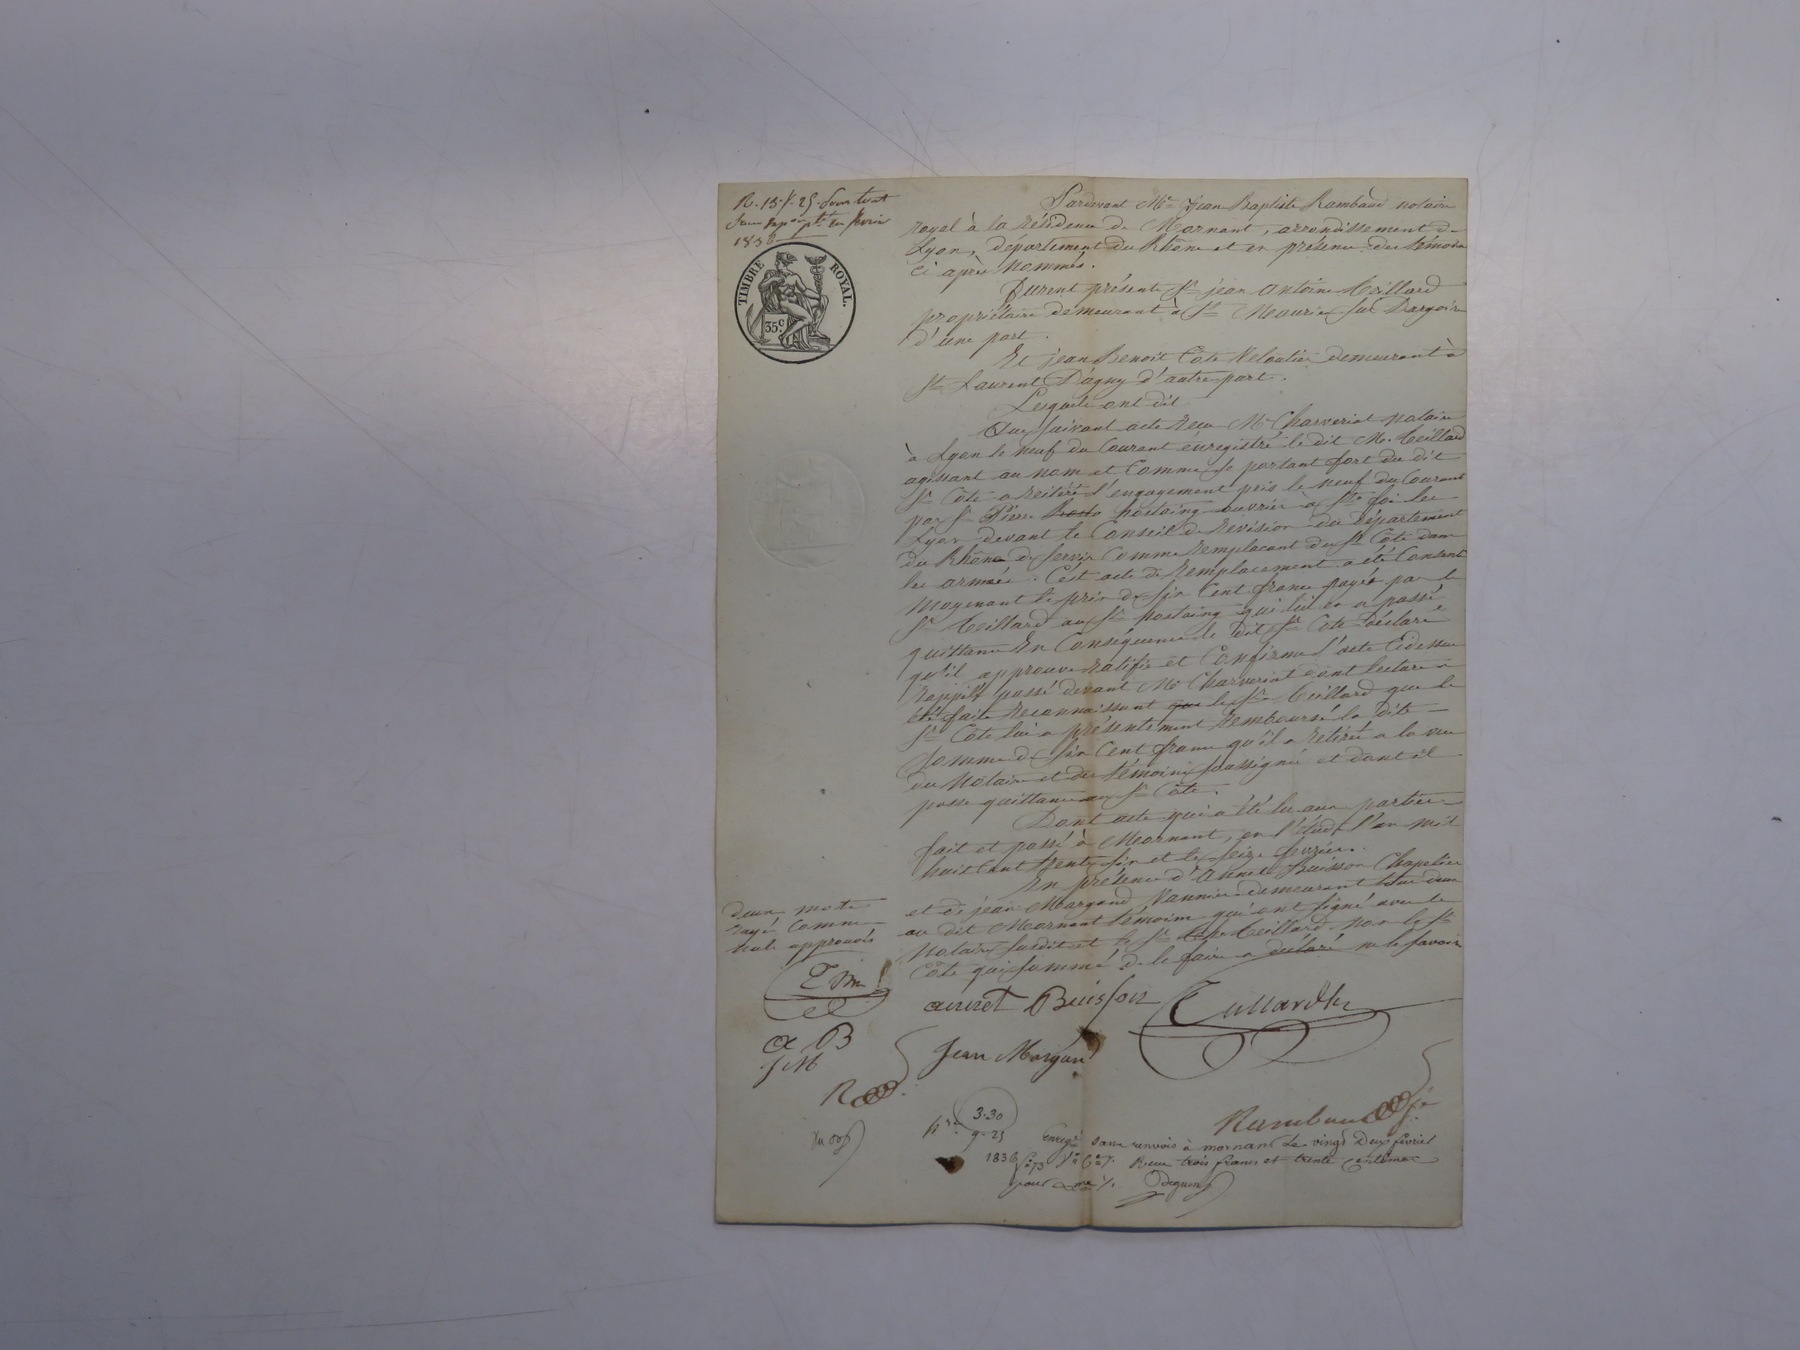 R. 13 f. 25
1836
TIMBRE ROYAL.
35 c.
Pardevant Me Jean Baptiste Rambaud notaire
royal à la Résidence de Mornant, arrondissement de
Lyon, département du Rhône et en présence des témoins
ci après nommés.
Furent présents Sr jean Antoine Teillard
propriétaire demeurant à St Maurice sur Dargoire
d'une part.
Et jean Benoit Cote Veloutier demeurant à
St Laurent Dagny d'autre part.
Lesquels ont dit
Que suivant acte Reçu Me Charveriat notaire
à Lyon le neuf du Courant enregistré le dit M. Teillard
agissant au nom et Comme se portant fort du dit
Sr Côte a Réitéré l'engagement pris le neuf du Courant
par Sr Pierre hostaing ouvrier à Ste foi les
Lyon devant le Conseil de Revision du Département
du Rhône de servir Comme Remplacant du Sr Côte dans
les armées. Cest acte de Remplacement a été Consent
Moyenant le prix de six Cent francs payés par le
Sr Teillard au Sr hostaing qui lui en a passé
quittance En Conséquence le dit Sr Cote déclare
qu'il approuve Ratifie et Confirme l'acte Cidessus
Rappélé passé devant Me Charveriat dont lecture a
été faite Reconnaissant que le Sr Teillard que le
Sr Côte lui a présentement Remboursé la dite
somme de six Cent francs qu'il a Retirée a la vue
du Notaire et des témoins soussignés et dont il
passe quittance au Sr Côte.
Dont acte qui a été lu aux parties
fait et passé à Mornant, en l'étude l'an mil
huit Cent trente six et le seize février.
En présence d'Annet Buisson Chapelier
et de jean Margand Vannier demeurant tous deux
au dit Mornant témoins qui ont signé avec le
Notaire susdit et le Sr Teillard Non le Sr
Côte qui sommé de le faire a déclaré ne le savoir
Deux mots
rayés Comme
nuls approuvés
annet Buisson
Teillard
A B
J M
Jean Margan
R
Rambaud
3-30
9-25
Enregé sans renvois à mornant Le vingt Deux février
1836 fo 73 Vo Ce 7. Reçu trois francs et trente Centimes